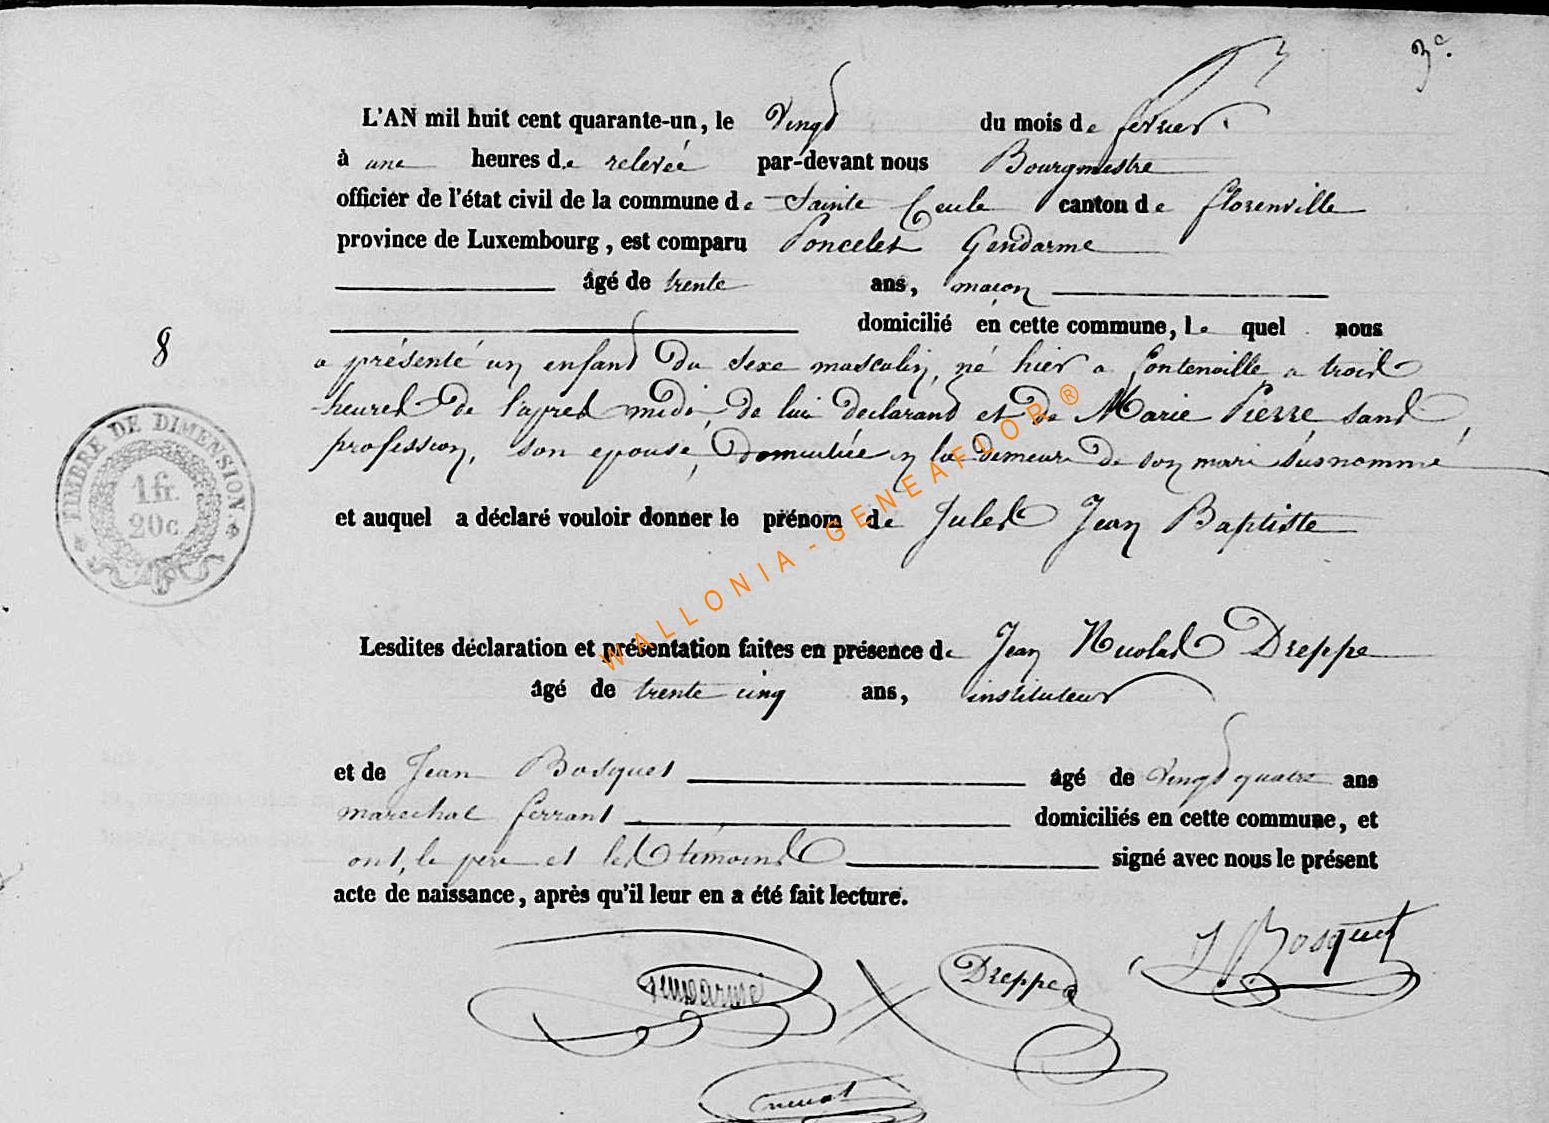 3e.
L'AN mil huit cent quarante-un, le Vingt du mois de fevrier
à une heures de relevée par-devant nous Bourgmestre
officier de l'état civil de la commune de Sainte Cecile canton de florenville
province de Luxembourg, est comparu Poncelet Gendarme
âgé de trente ans, maçon
domicilié en cette commune, le quel nous
8
a présenté un enfant du sexe masculin, né hier a fontenoille a trois
heures de l'apres midi, de lui declarant et de Marie Pierre, sans
profession, son epouse, domiciliée en la demeure de son mari susnommé
et auquel a déclaré vouloir donner le prénom de Jules Jean Baptiste
TIMBRE DE DIMENSION
1 fr.
20c.
WALLONIA-GENEAFLOR®
Lesdites déclaration et présentation faites en présence de Jean Nicolas Dreppe
âgé de trente cinq ans, instituteur
et de Jean Bosquet âgé de Vingt quatre ans
marechal ferrant domiciliés en cette commune, et
ont, le pere et les témoins signé avec nous le présent
acte de naissance, après qu'il leur en a été fait lecture.
Gendarme Dreppe J Bosquet